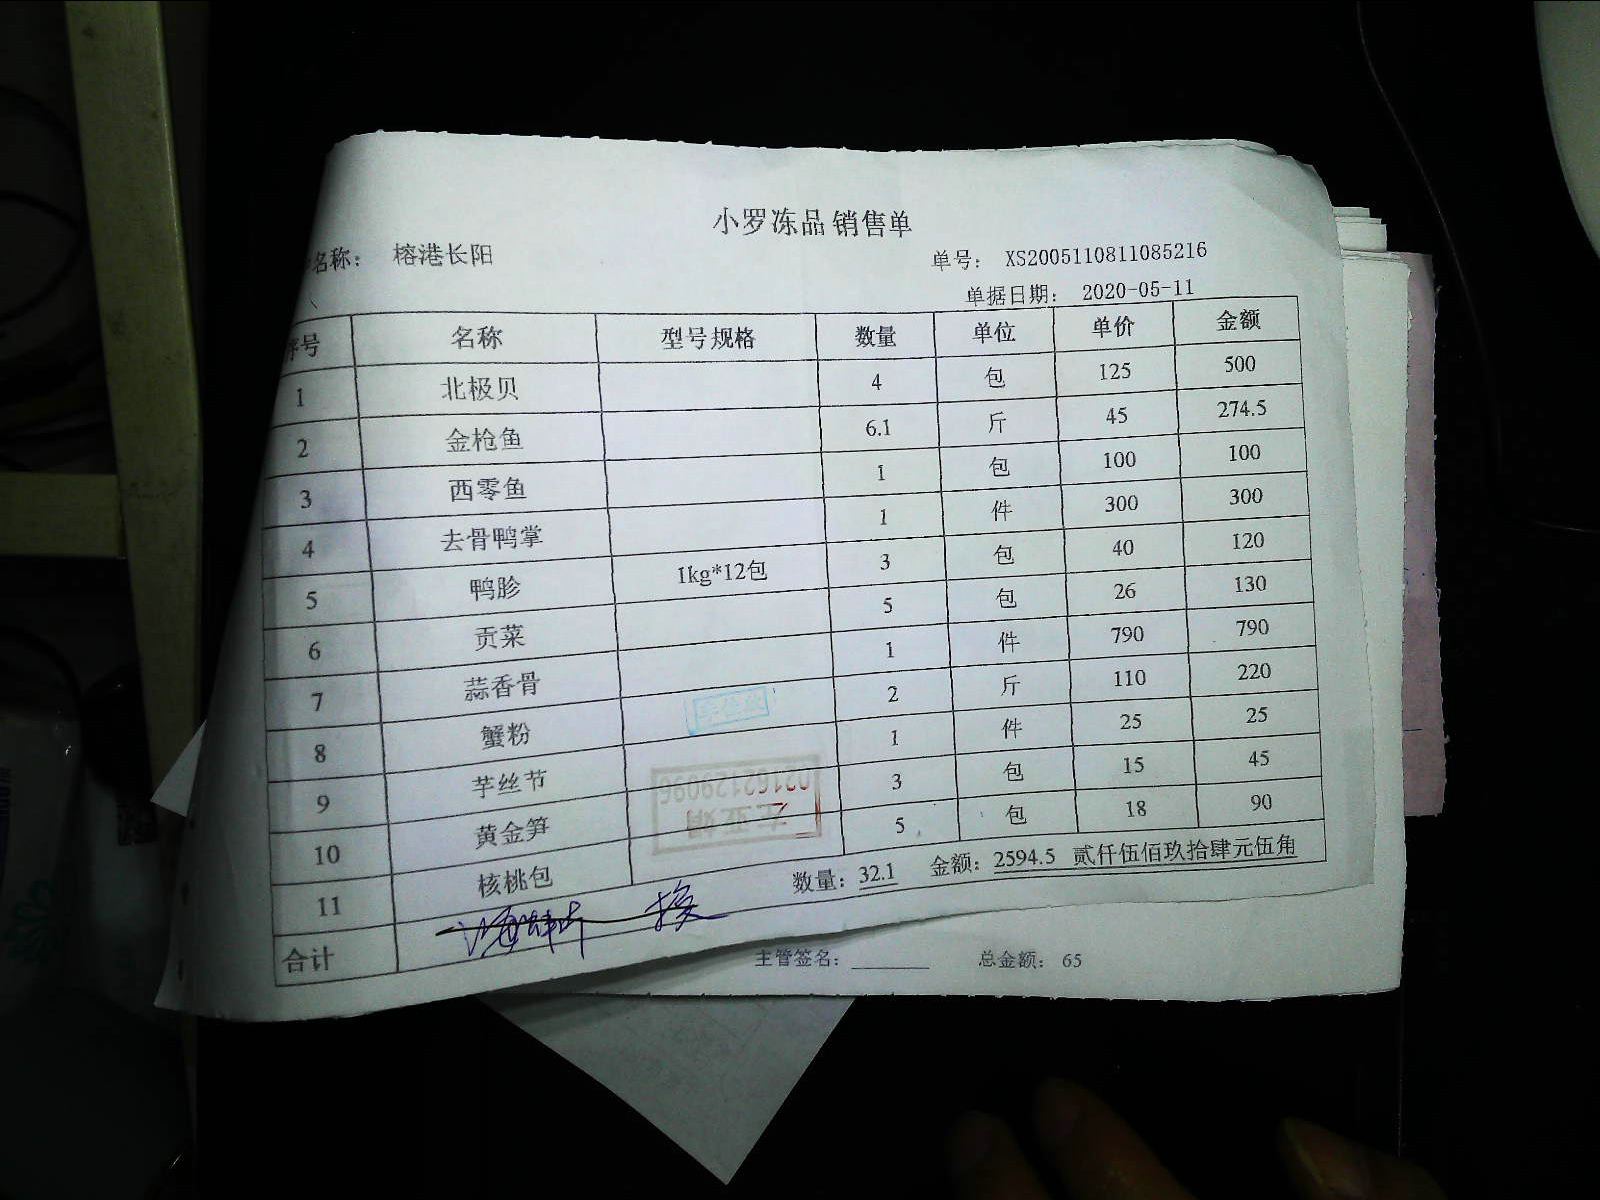 小罗冻品销售单
名称： 榕港长阳 单号： XS2005110811085216
单据日期： 2020-05-11
序号 名称 型号规格 数量 单位 单价 金额
1 北极贝 4 包 125 500
2 金枪鱼 6.1 斤 45 274.5
3 西零鱼 1 包 100 100
4 去骨鸭掌 1 件 300 300
5 鸭胗 1kg*12包 3 包 40 120
6 贡菜 5 包 26 130
7 蒜香骨 1 件 790 790
8 蟹粉 2 斤 110 220
9 芋丝节 1 件 25 25
10 黄金笋 3 包 15 45
11 核桃包 5 包 18 90
合计 数量：32.1 金额：2594.5 贰仟伍佰玖拾肆元伍角
换
02162129096
主管签名： 总金额： 65